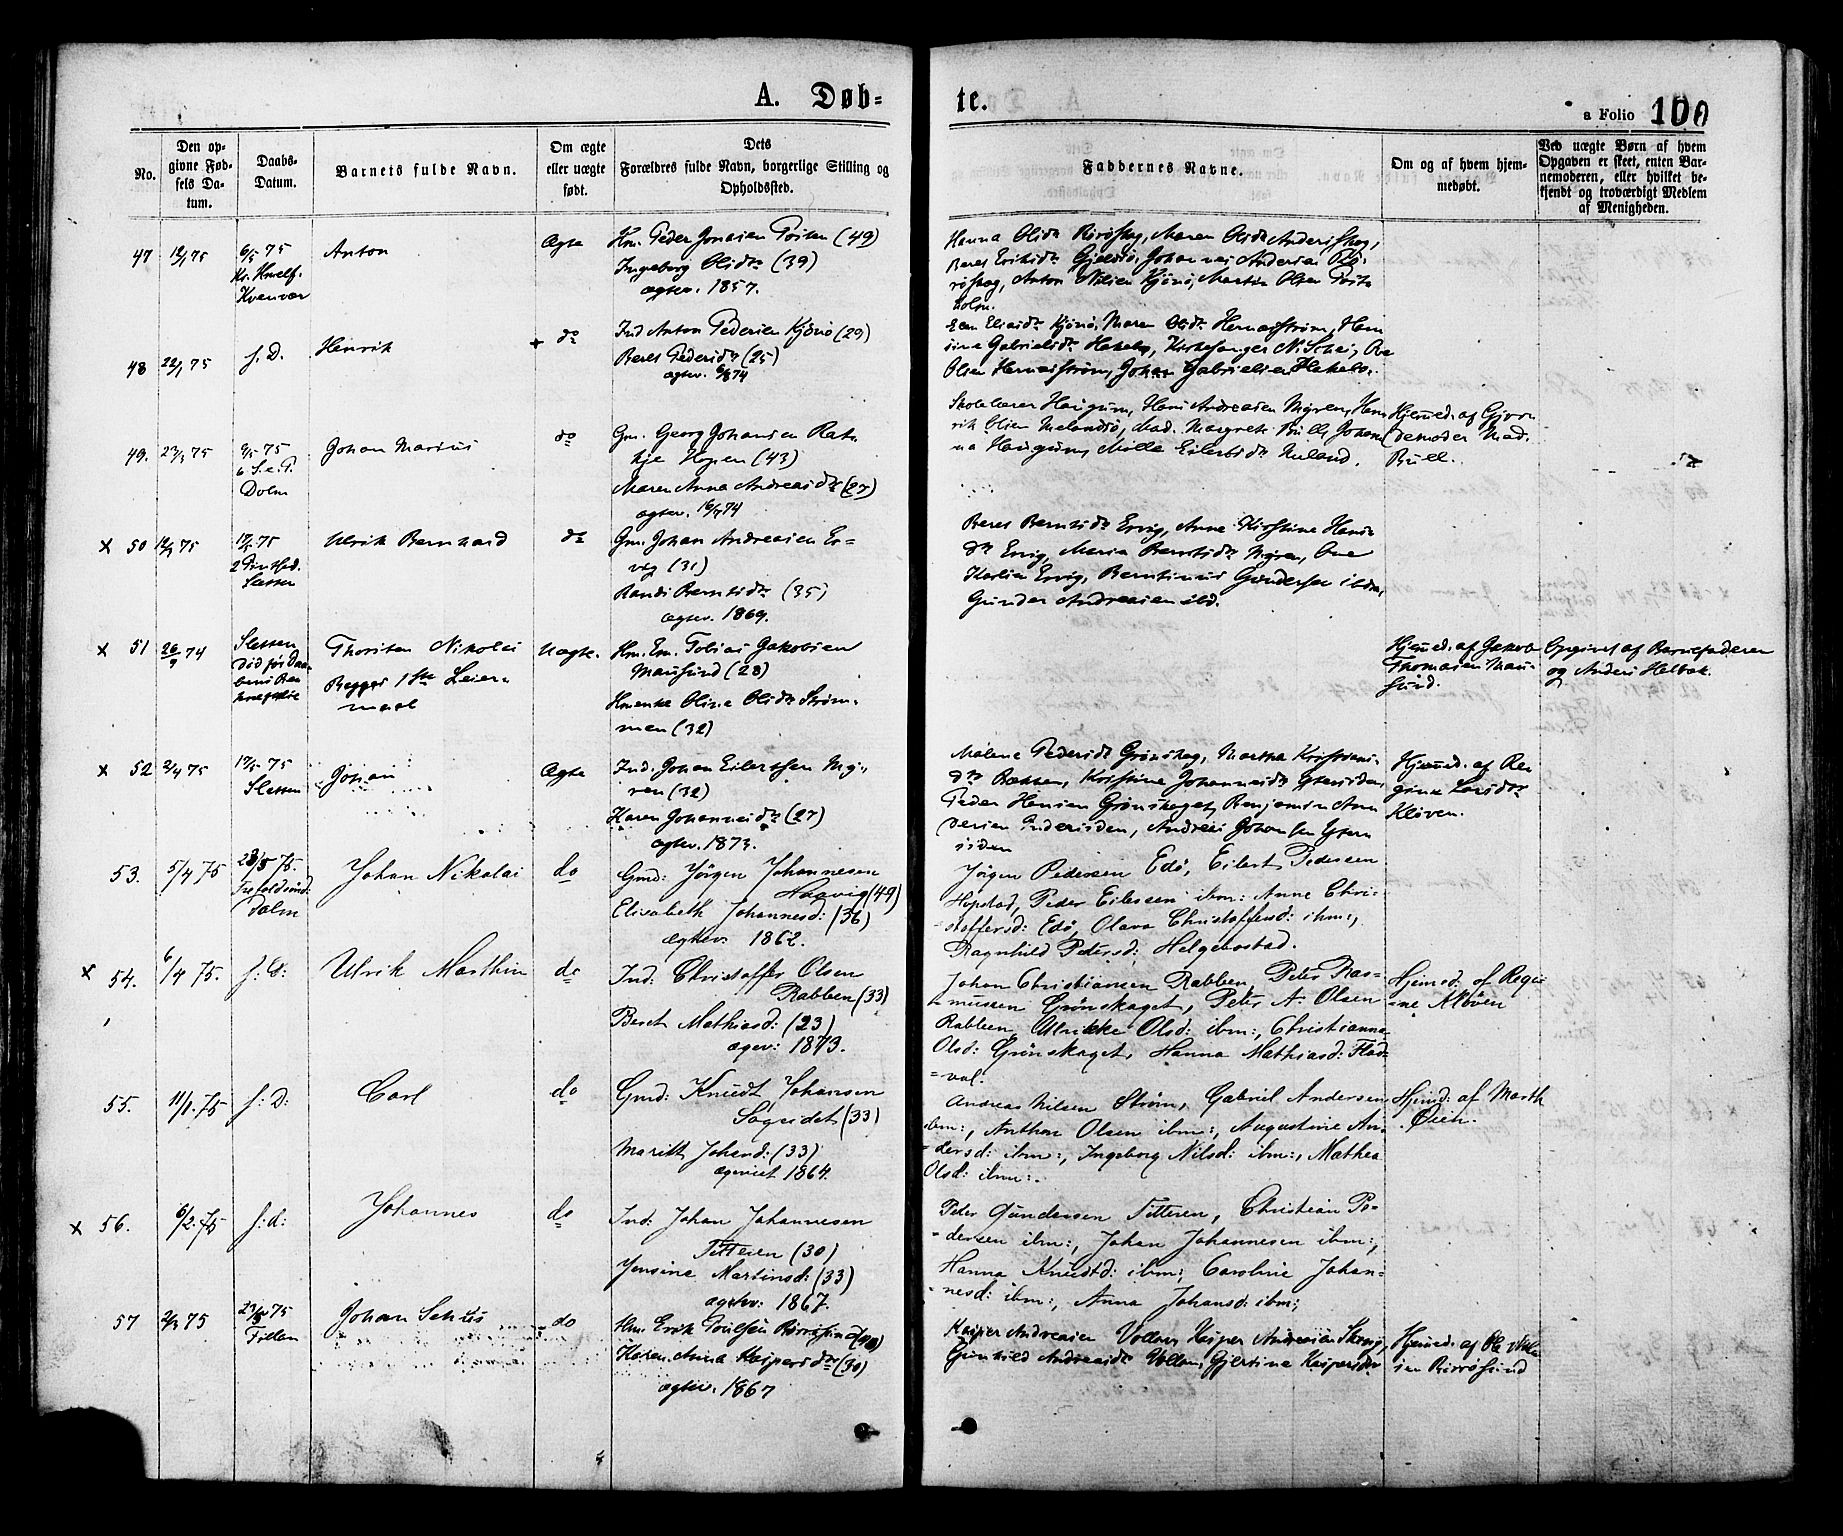 A. Døb-
te.
a Folio 100
No.
Den op-
givne Fød-
sels Da-
tum.
Daabs-
Datum.
Barnets fulde Navn.
Om ægte
eller uægte
født.
Dets
Forældres fulde Navn, borgerlige Stilling og
Opholdssted.
Faddernes Navne.
Om og af hvem hjem-
medøbt.
Ved uægte Børn af hvem
Opgaven er skeet, enten Bar-
nemoderen, eller hvilket be-
kjendt og troværdigt Medlem
af Menigheden.
47
12/1 75
6/5 75
Kr. Himelf.
Kvenvær
Anton
Ægte
Hm. Peder Jonasen (49)
Ingeborg Olsdr (39)
ægtev. 1857.
Hanna Olsdr Maren Olsdr
Beret Johannes Andersen
Anton Nilsen Kjønø, Martin Olsen
holm.
48
22/1 75
s. D.
Henrik
+ do
Ind Anton Pedersen Kjønø (29)
Beret Pedersdr (25)
ægtev. 6/8 74
Kjønø, Maren Olsdr Hernæsstrøm, Han
sine Gabrielsdr Hakebo, Kirkesanger Ove
Olsen Hernæsstrøm, Johan Gabrielsen Hakebo.
49.
23/3 75
9/5 75
6 S. e. P.
Dolm
Johan Marius
do
Gm. Georg Johansen Rat-
kje Hopen (43)
Maren Anna Andreasdr (27)
ægtev. 16/7 74
Skolelærer Haugum, Hans Andreasen Myren, Hen
rik Olsen Melandsø, Mad. Margrete Bull, Johan
na Haugum, Eilertsdr Uland.
Hjemed. af Gjor
demoder Mad.
Bull.
x 50
75
17/5 75
2 Pintsed.
Sletten
Ulrik Bernhard
do
Gm. Johan Andreasen Er-
vig (31)
Randi Berntsdr (35)
ægtev. 1869.
Beret Berntsdr Ervig, Anne Kirstine Hans
dr Ervig, Maria Berntsdr Myren, Ove
Karlsen Ervig, Berntinus Gundersen ibdm,
Gunder Andreasen ibd.
x 51
26/9 74
Sletten
Død før Daa-
Thorsten Nikolai
Begges 1ste Leier-
maal
Uægte.
Hm. Em. Tobias Jakobsen
Mausund (28)
Olina Olsdr Strøm-
men (32)
Hjemed. af Jakob
Thomasen Mau-
sund.
Opgivet af Barnefaderen
og Anders Helbak.
x 52
3/4 75
17/5 75
Sletten
Johan
Ægte
Ind. Johan Eilertsen My-
ren (32)
Karen Johannesdr (27)
ægtev. 1873.
Malene Pedersdr Grønskag, Martha Kristians-
dr Bakken, Kristine Johannesdr Ytersiden
Peder Hansen Grønskaget, Benjamin An-
dersen Andreas Johansen Yter-
siden
Hjemed. af Re-
gine Larsdr
Kløven.
53.
5/4 75
23/5 75.
Trefoldsønd.
Dolm
Johan Nikolai
do
Gmd: Jørgen Johannesen
Haavig (49)
Elisabeth Johannesd: (36)
Ægtev: 1862.
Jørgen Pedersen Edø, Eilert Pedersen
Hopstad, Peder Eilesen ibm: Anne Chri-
-stoffersd: Edø, Olava Christoffersd: ibm:,
Ragnhild Petersd: Helgebostad.
x 54.
6/4 75.
s: D:
Ulrik Marthin
do
Ind: Christoffer Olsen
Rabben (33)
Beret Mathiasd: (23)
ægev: 1873.
Johan Christiansen Rabben, Peter Ras-
-mussen Grønskaget, Peter A. Olsen
Rabben, Ulrikke Olsd: ibm:, Christianna
Olsd: Grønskaget, Hanna Mathiasd: Flad-
-val.
Hjemd: af Regi-
-ne Kløven
55.
11/1. 75
s: D:
Carl
do
Gmd: Knudt Johansen
(33)
Maritt Johansd: (33)
ægeviet 1864.
Andreas Nilsen Strøm, Gabriel Andersen
ibm:, Anthon Olsen ibm:, Augustine An-
-dersd: ibm:, Ingeborg Nilsd: ibm:, Mathea
Olsd: ibm:.
Hjemd: af Marth
Øien.
x 56.
6/2. 75
s: d:
Johannes
do
Ind: Johan Johannesen
Titteren (30)
Jensine Martinsd: (33)
ægtev: 1867.
Peter Gundersen Titteren, Christian Pe-
-dersen ibm:, Johan Johannesen ibm:,
Hanna Knudtd: ibm:, Caroline Johan-
-nesd: ibm:, Anna Johansd: ibm;
57
2/3 75
23/5 75
Fillan
Johan
do
Hm. Erik Poulsen
Karen Anna Kaspersdr (30)
ægtev. 1867
Kasper Andreasen Vollan, Kasper Andreasen
Gunhild Andreasdr Vollan, Gjertine Kaspersdr
Hjemed. af Ole Nil-
sen